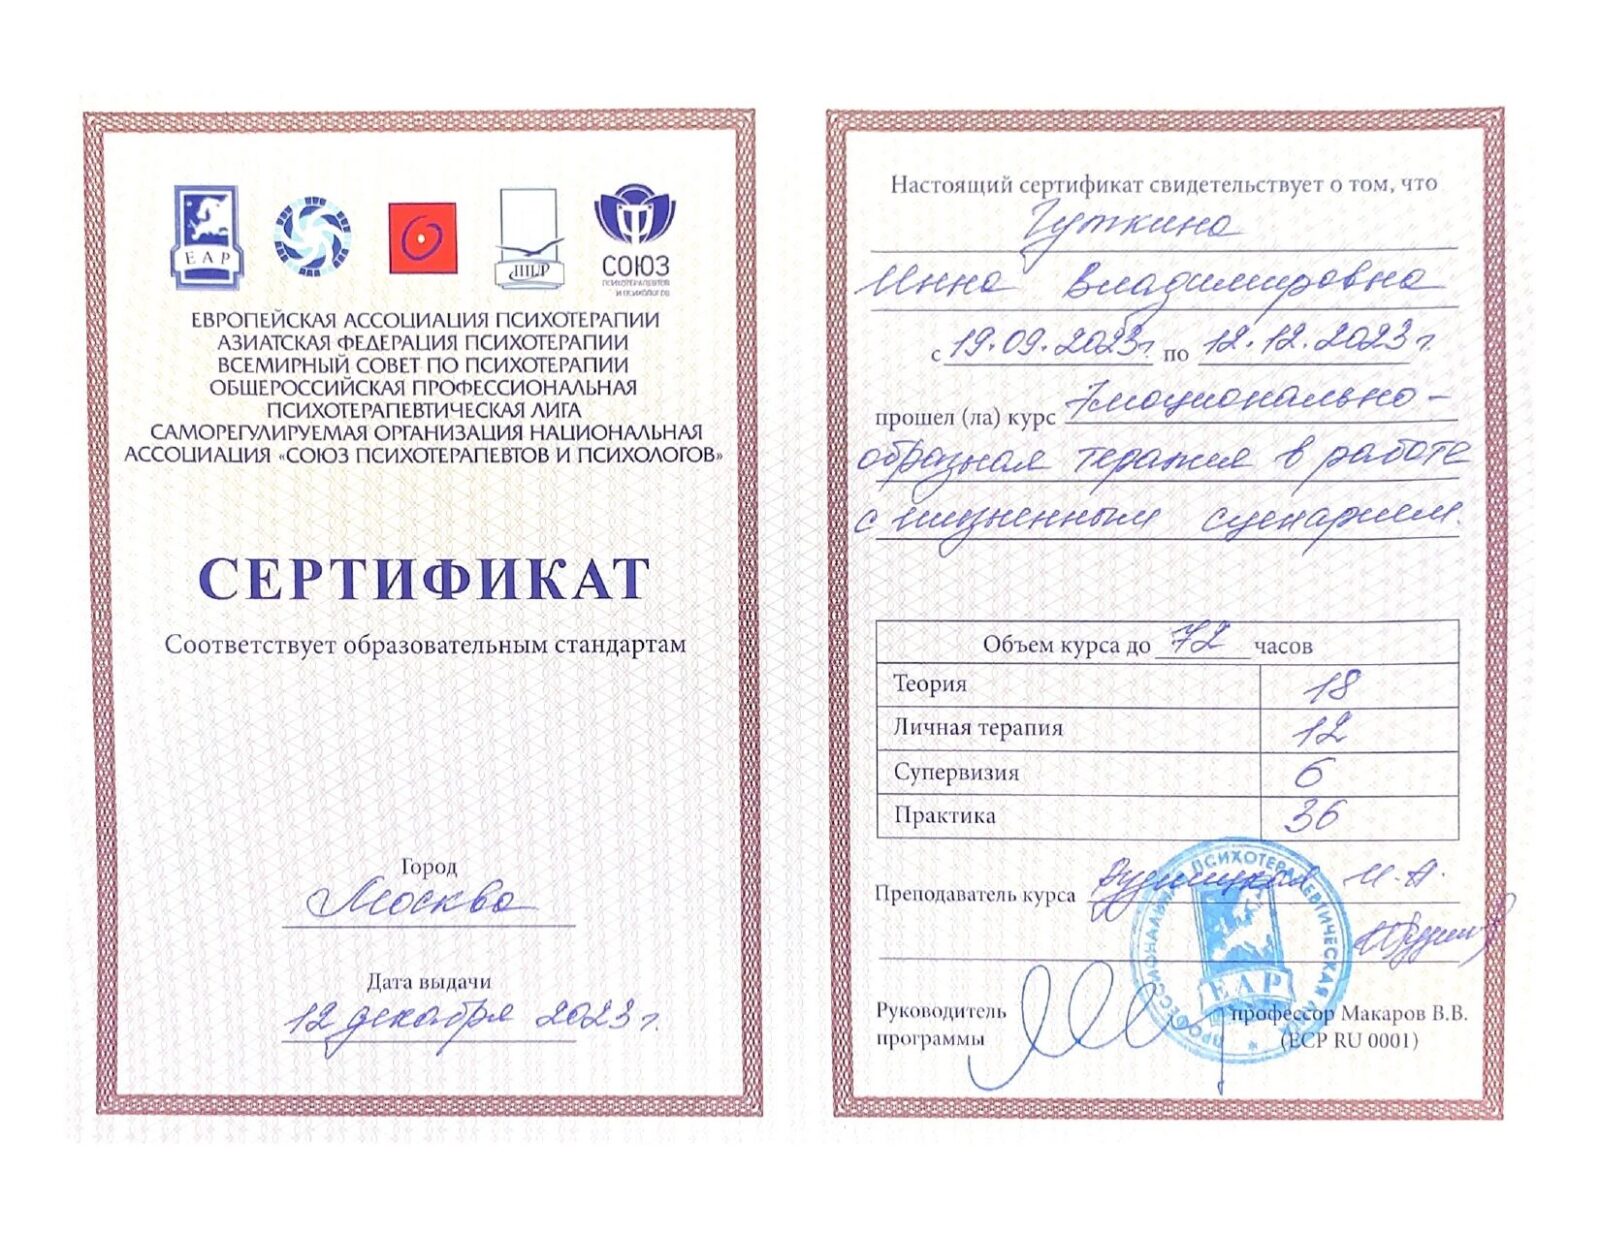 ЕАР
ППЛ
СОЮЗ
ПСИХОТЕРАПЕВТОВ
И ПСИХОЛОГОВ
ЕВРОПЕЙСКАЯ АССОЦИАЦИЯ ПСИХОТЕРАПИИ
АЗИАТСКАЯ ФЕДЕРАЦИЯ ПСИХОТЕРАПИИ
ВСЕМИРНЫЙ СОВЕТ ПО ПСИХОТЕРАПИИ
ОБЩЕРОССИЙСКАЯ ПРОФЕССИОНАЛЬНАЯ
ПСИХОТЕРАПЕВТИЧЕСКАЯ ЛИГА
САМОРЕГУЛИРУЕМАЯ ОРГАНИЗАЦИЯ НАЦИОНАЛЬНАЯ
АССОЦИАЦИЯ «СОЮЗ ПСИХОТЕРАПЕВТОВ И ПСИХОЛОГОВ»
СЕРТИФИКАТ
Соответствует образовательным стандартам
Город
Москва
Дата выдачи
12 декабря 2023 г.
Настоящий сертификат свидетельствует о том, что
Гуткина
Инна Владимировна
с 19.09.2023г. по 12.12.2023 г.
прошел (ла) курс Эмоционально-
образная терапия в работе
с жизненным сценарием.
Объем курса до 72 часов
Теория 18
Личная терапия 12
Супервизия 6
Практика 36
Преподаватель курса Рудницкая И.А.
Руководитель
программы
профессор Макаров В.В.
(ECP RU 0001)
ПРОФЕССИОНАЛЬНАЯ ПСИХОТЕРАПЕВТИЧЕСКАЯ ЛИГА
ЕАР